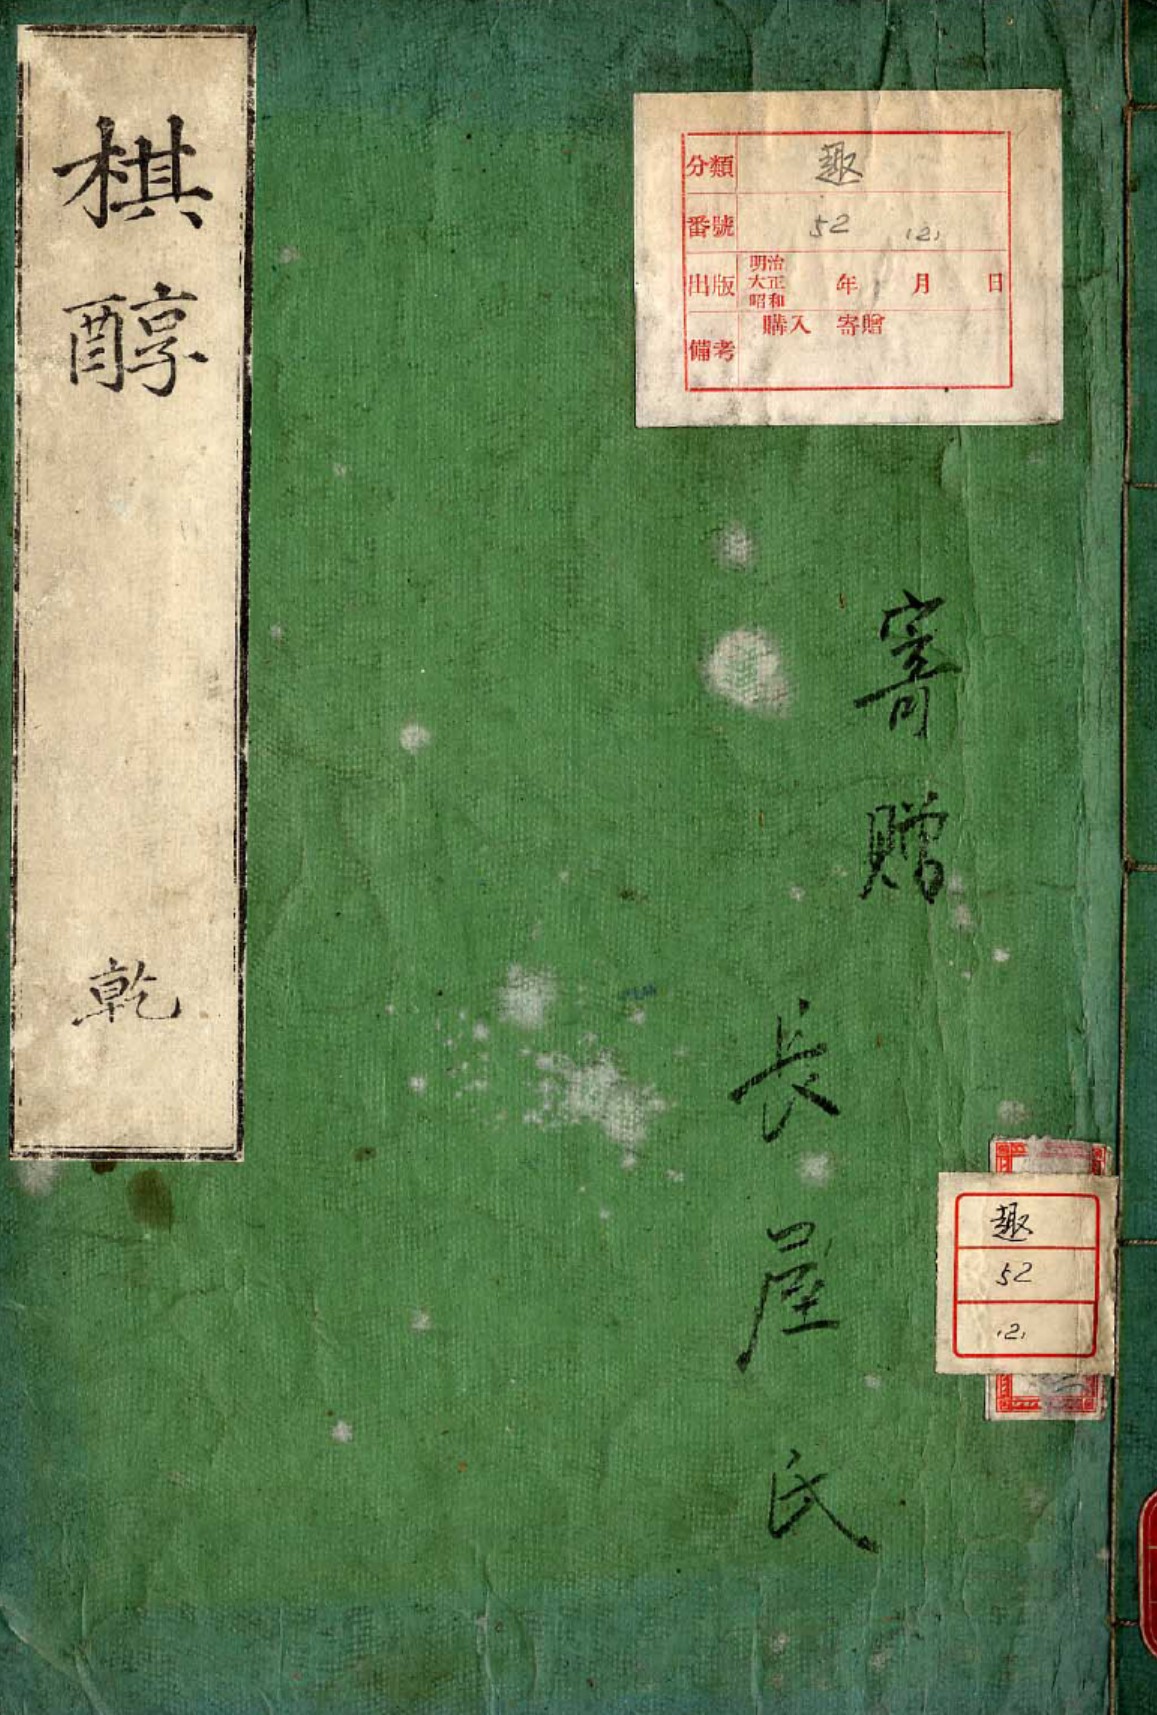 棋醇 乾
分類 趣
番號 52 (2)
出版 明治 大正 昭和 年 月 日
備考 購入 寄贈
寄贈
長屋氏
趣
52
(2)